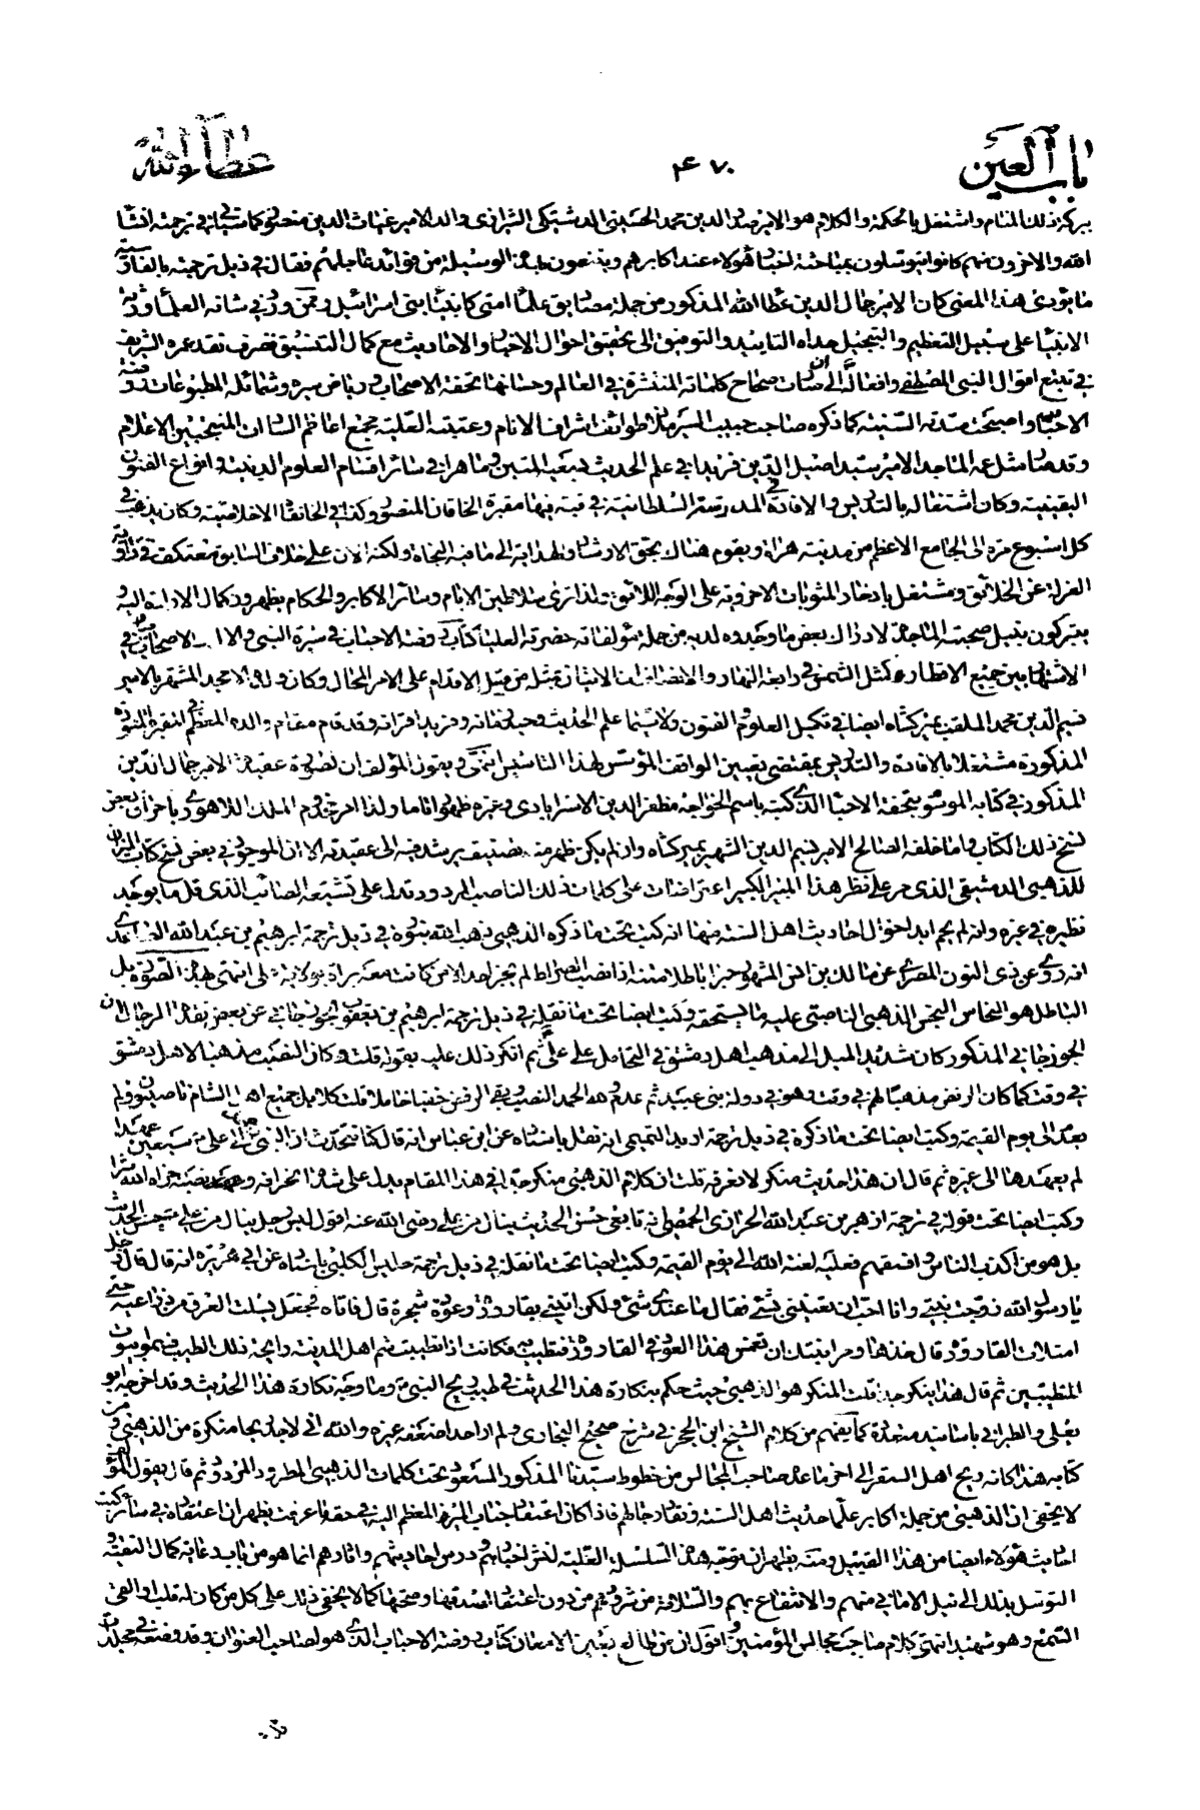 باب العين
۴۷۰
عطاء الله
ببركة ذلك المنام واشتغل بالحكمة والكلام هو الامير صدر الدين محمد الحسيني الدشتكي الشيرازي والد الامير غياث الدين منصور كما سيأتي في ترجمته انشا
الله والاخرون منهم كانوا يتوسلون بمباحثة اخبار هؤلاء عند اكابرهم وينتفعون بهذه الوسيلة من فوائد عاجلهم فقال في ذيل ترجمته بالفارسية
ما يؤدى هذا المعنى كان الامير جمال الدين عطاء الله المذكور من جملة مصابق علماء امتى كانبياء بنى اسرائيل وممن ورد في شانه العلماء ورثة
الانبياء على سبيل التعظيم والتبجيل هداه التاييد والتوفيق الى تحقيق احوال الاخبار والاحاديث مع كمال التنسيق فصرف نقد عمره الشريف
في تتبع اقوال النبي المصطفى وافعاله الى ان صارت صحاح كلماته المنتشرة في العالم وحسانها تحفة الاصحاب ورياض سيره وشمائله المطبوعات روضة
الاحباب واصبحت سدته السنية كما ذكره صاحب حبيب السير ملاذ طوائف اشراف الانام وعتبته العلية مجمع اعاظم السادات المنتجبين الاعلام
وقد صار مثل عمه الماجد الامير سيد اصيل الدين فريدا في علم الحديث بسعيه المتين وماهرا في سائر اقسام العلوم الدينية وانواع الفنون
اليقينية وكان اشتغاله بالتدريس والافادة في المدرسة السلطانية في قبة فيها مقبرة الخاقان المنصور وكذا في الخانقاه الاخلاصية وكان يذهب في
كل اسبوع مرة الى الجامع الاعظم من مدينة هراة ويقوم هناك بحق الارشاد والهداية الى ما فيه النجاة ولكنه الان على خلاف السابق معتكف في زاوية
العزلة عن الخلائق ومشتغل بادخار المثوبات الاخروية على الوجه اللائق ولذا ترى سلاطين الايام وسائر الاكابر والحكام يظهرون كمال الارادة اليه و
يتبركون بنيل صحبته الماجدة لادراك بعض ما وجدوه لديه من جملة مؤلفاته حضرته العليا كتاب روضة الاحباب في سيرة النبي والال والاصحاب وهو في
الاشتهار بين جميع الاقطار كمثل الشمس في رابعة النهار والانصاف ان الاتيان بمثله من قبيل الاقدام على الامر المحال وكان ولده الامجد المشتهر بالامير
نسيم الدين محمد الملقب بميركشاه ايضا في تكميل العلوم والفنون ولا سيما علم الحديث وحيد زمانه وفريد اقرانه وقد قام مقام والده المعظم في المقبرة المنورة
المذكورة مشتغلا بالافادة والتدريس بمقتضى تعيين الواقف المؤسس لهذا التاسيس انتهى ويقول المؤلف ان لصورة عقيدة الامير جمال الدين
المذكور في كتابه الموسوم بتحفة الاحباء الذي كتبه باسم الخواجه مظفر الدين الاسترابادي وغيره ظهورا تاما ولذا امر مخدوم الملك اللاهوري باحراق بعض
نسخ ذلك الكتاب واما خلفه الصالح الامير نسيم الدين الشهير بميركشاه وان لم يكن ظهر منه تصنيف يرشد فيه الى عقيدته الا ان الموجود في بعض نسخ كتاب الميزان
للذهبي الدمشقي الذي مر على نظر هذا الميز الكبير اعتراضات على كلمات ذلك الناصب المردود تدل على تشيعه الصائب الذي قل ما يوجد
نظيره في غيره وانه لم يحم ابدا حول احاديث اهل السنة فمنها انه كتب تحت ما ذكره الذهبي ذهب الله بنوره في ذيل ترجمة ابرهيم بن عبد الله الصاعدي
انه روى عن ذى النون المصري عن مالك بن انس المشهور خبرا باطلا متنه اذا نصب الصراط لم يجز احد الا من كانت معه براءة بولاية على انتهى بهذه الصورة بل
الباطل هو النحاس النجس الذهبي الناصبي عليه ما يستحقه وكتب ايضا تحت ما نقله في ذيل ترجمة ابرهيم بن يعقوب الجوزجاني عن بعض نقلة الرجال ان
الجوزجاني المذكور كان شديد الميل الى مذهب اهل دمشق في التحامل على علي ثم انكر ذلك عليه بقوله قلت وكان النصب مذهبا لاهل دمشق
في وقت كما كان الرفض مذهبا لهم في وقت وهو في دولة بنى عبيد ثم عدم ولله الحمد النصب وبقى الرفض خفيا خاملا قلت كلا بل جميع اهل الشام ناصبون ولم
بعد الى يوم القيمة وكتب ايضا تحت ما ذكره في ذيل ترجمة اربد التميمي انه نقل باسناده عن ابن عباس انه قال كنا نتحدث ان النبي عهد الى علي سبعين عهدا
لم يعهدها الى غيره ثم قال ان هذا حديث منكر لا نعرفه قلت ان كلام الذهبي منكر جدا في هذا المقام يدل على شدة انحرافه ونصبه جزاه الله شرا
وكتب ايضا تحت قوله في ترجمة ازهر بن عبد الله الحرازي الحمصي انه تابعي حسن الحديث ينال من علي رضي الله عنه اقول ليس رجل ينال من علي حسن الحديث
بل هو من اكذب الناس وافسقهم فعليه لعنة الله الى يوم القيمة وكتب ايضا تحت ما نقله في ذيل ترجمة حلبس الكلبي باسناده عن ابي هريرة انه قال قال رجل
يا رسول الله زوجت بنتي وانا احب ان تعينني بشئ فقال ما عندي شئ ولكن ائتني بقارورة وعود شجرة قال فاتاه فجعل يسلت العرق من ذراعيه حتى
امتلات القارورة قال خذها ومر ابنتك ان تغمس هذا العود في القارورة فتطيب به فكانت اذا تطيبت شم اهل المدينة رائحة ذلك الطيب فسموا بيوت
المتطيبين ثم قال هذا منكر جدا قلت المنكر هو الذهبي حيث حكم بنكارة هذا الحديث في طيب ريح النبي وما وجه نكارة هذا الحديث وقد اخرجه ابو
يعلى والطبراني باسانيد متعددة كما يفهم من كلام الشيخ ابن الحجر في شرح صحيح البخاري ولم ار احدا ضعفه غيره والله اني لاجد ريحا منكرة من الذهبي ومن
كتابه هذا كانه ريح اهل السقر الى اخر ما عده صاحب المجالس من خطوط سيدنا المذكور المسعود تحت كلمات الذهبي المطرود المردود ثم قال يقول المؤلف
لا يخفى ان الذهبي من جملة اكابر علماء حديث اهل السنة ونقاد رجالهم فاذا كان اعتقاد جناب الميرزا المعظم اليه في حقه ما عرفت يظهر ان اعتقاده في سائر كتب
احاديث هؤلاء ايضا من هذا القبيل ومنه يظهر ان توجه هذه السلسلة العلية لنشر اخبارهم ودرس احاديثهم واثارهم انما هو من باب رعاية كمال التقية و
التوسل بذلك الى نيل الاماني منهم والانتفاع بهم والسلامة من شرورهم من دون اعتقاد لصدقها وصحتها كما لا يخفى ذلك على كل من كان له قلب او القى
السمع وهو شهيد انتهى كلام صاحب مجالس المؤمنين واقول ان من طالع بعين الامعان كتاب روضة الاحباب الذي هو لصاحب العنوان وقد وضعه في مجلدات
ثلاثة